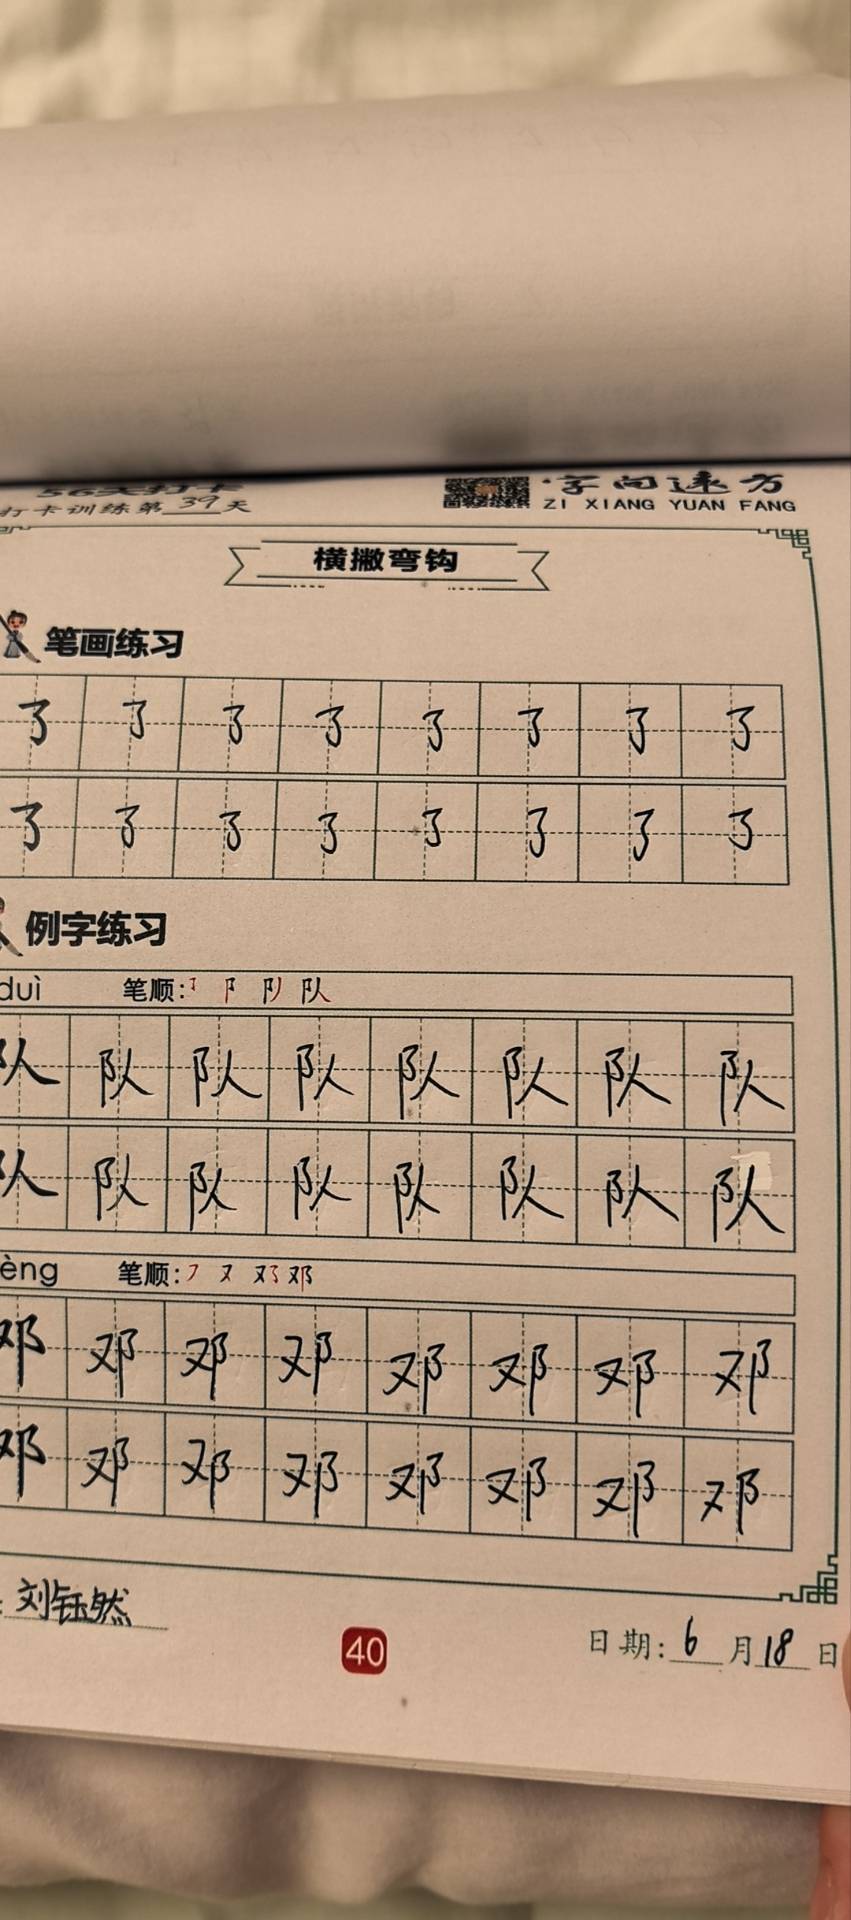 56天打卡
打卡训练第39天
字向远方
ZI XIANG YUAN FANG
横撇弯钩
笔画练习
例字练习
duì 笔顺:
队 队 队 队 队 队 队 队
队 队 队 队 队 队 队 队
èng 笔顺:
邓 邓 邓 邓 邓 邓 邓 邓
邓 邓 邓 邓 邓 邓 邓 邓
刘钰然
40
日期:6月18日